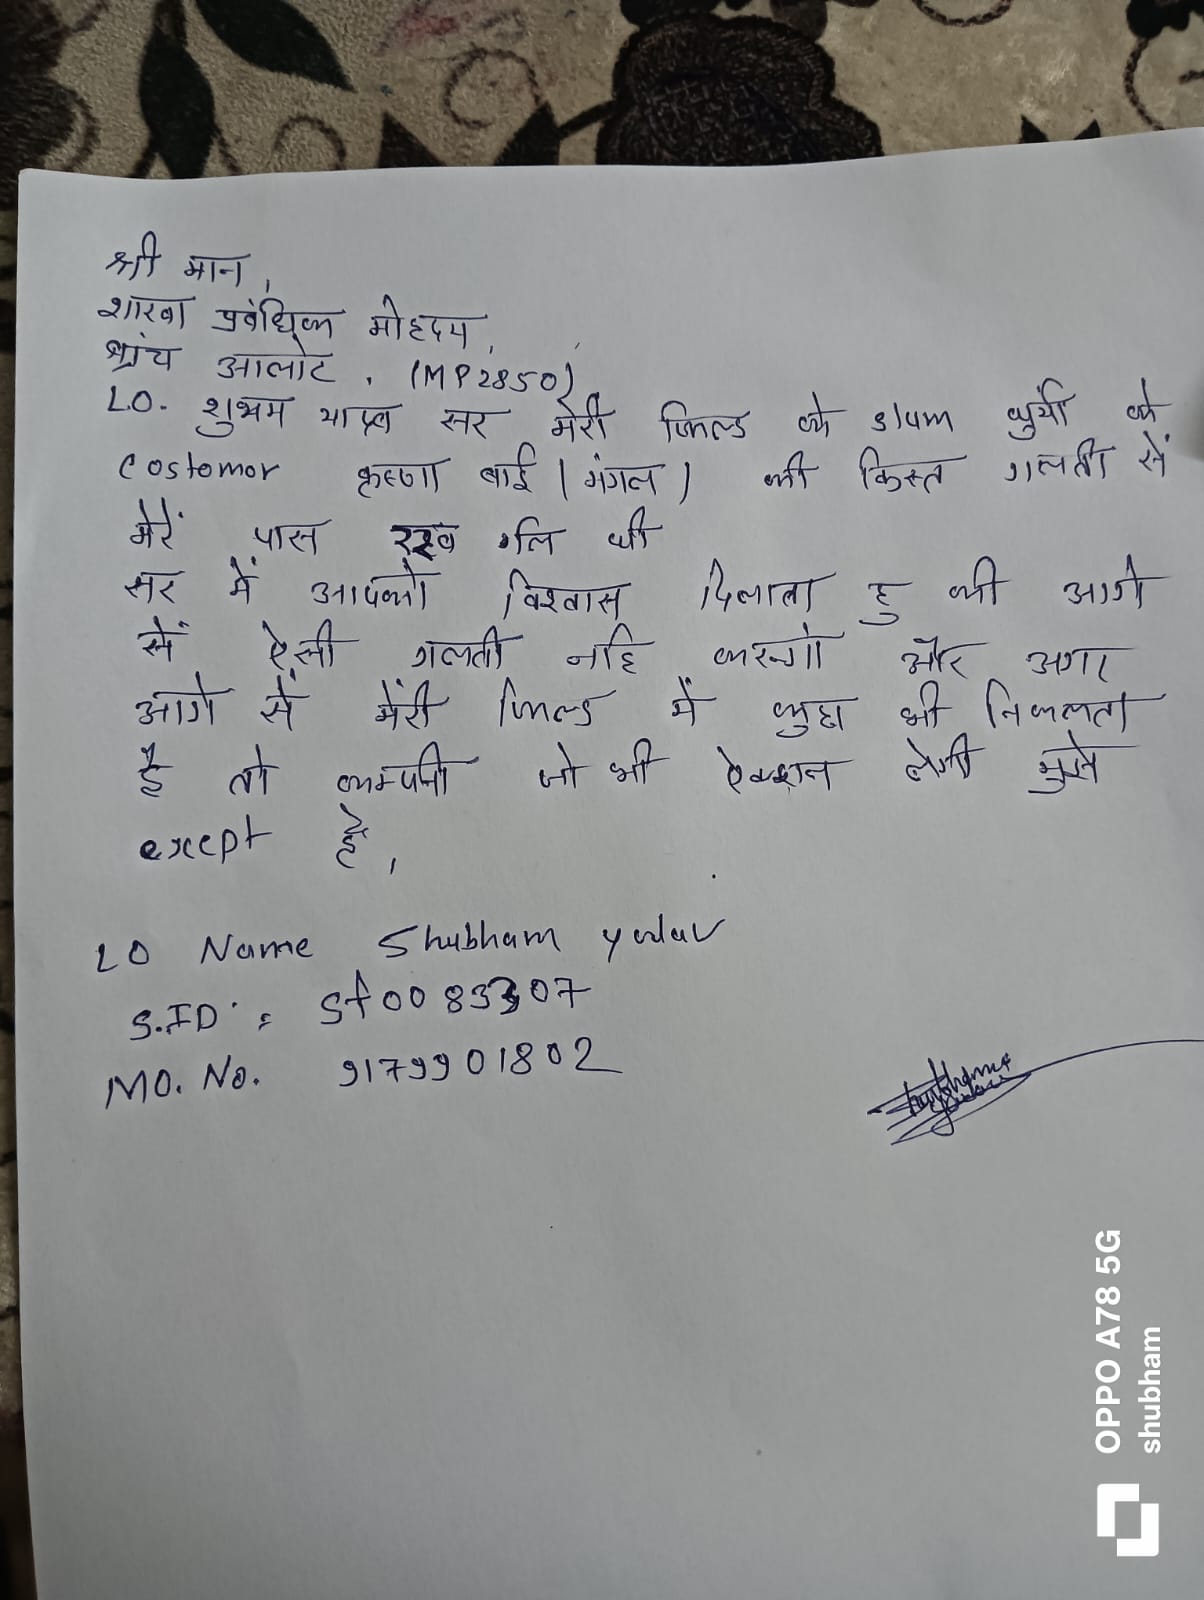 श्री मान,
शाखा प्रबंधिक मोहदय,
ब्रांच आलोट, (MP2850)
LO. शुभम यादव सर मेरी फिल्ड के slum धुर्यी के
costomor कृष्णा बाई (मंगल) की किस्त गलती सें
मेरें पास रख लि थी
सर में आपको विश्वास दिलाता हु की आगे
सें ऐसी गलती नहि करूगां और अगर
आगे सें मेंरी फिल्ड में कुछ भी निकलता
है तो कम्पनी जो भी ऐक्शन लेगी मुझे
except है,
LO Name Shubham yadav
S.ID : Sf0083307
MO. No. 9179901802
Shubham yadav
OPPO A78 5G
shubham